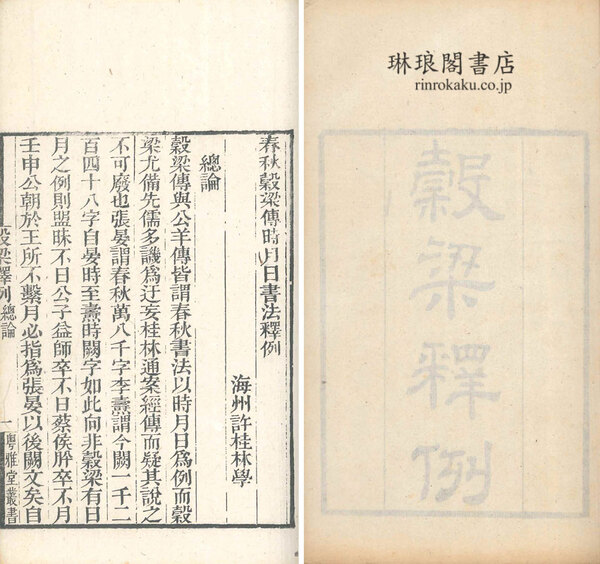 琳琅閣書店
rinrokaku.co.jp
穀梁釋例
春秋穀梁傳時月日書法釋例
海州許桂林學
總論
穀梁傳與公羊傳皆謂春秋書法以時月日爲例而穀
梁尤備先儒多譏爲迂妄桂林通案經傳而疑其說之
不可廢也張晏謂春秋萬八千字李燾謂今闕一千二
百四十八字自晏時至燾時闕字如此向非穀梁有日
月之例則盟昧不日公子益師卒不日蔡侯肸卒不月
壬申公朝於王所不繫月必指爲張晏以後闕文矣自
穀梁釋例總論
一
粵雅堂叢書